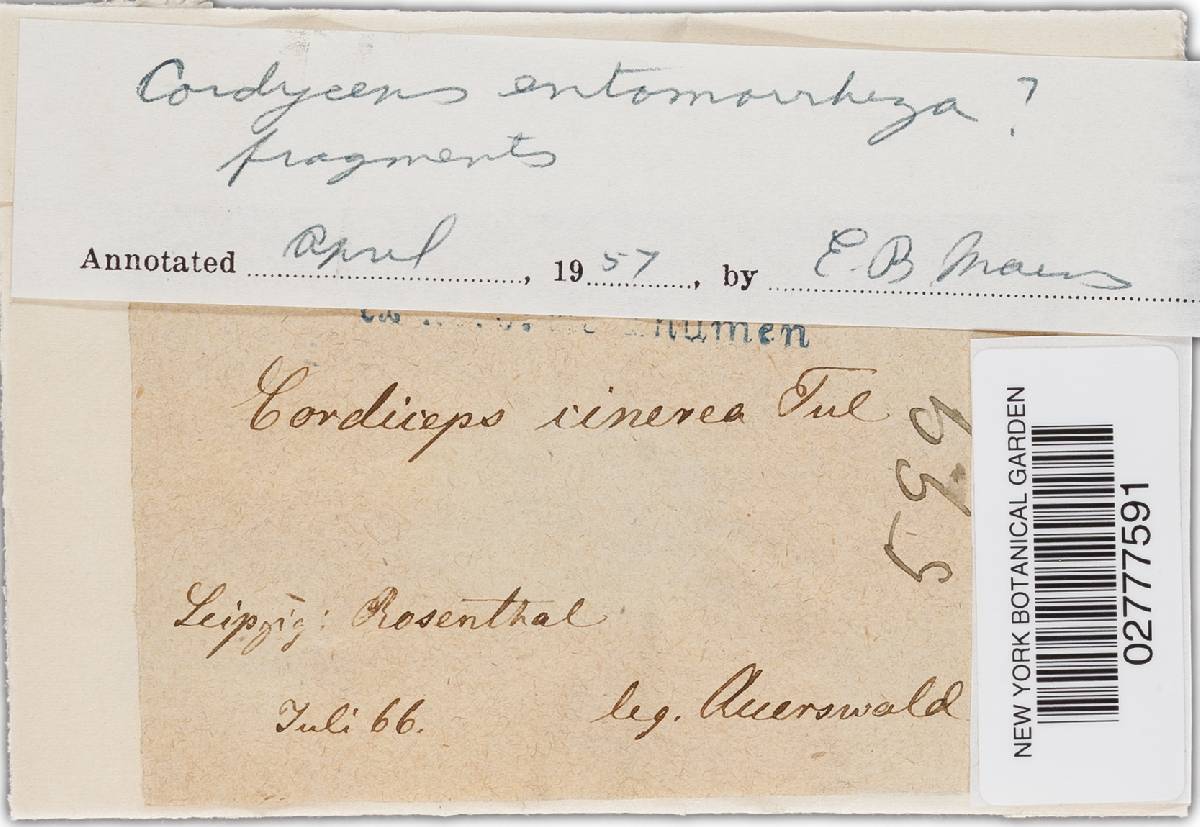 Cordyceps entomorrhiza ?
fragments
Annotated April, 1957, by E.B Mains
Thümen
Cordiceps cinerea Tul
Leipzig: Rosenthal
Juli 66.
leg. Auerswald
NEW YORK BOTANICAL GARDEN
02777591